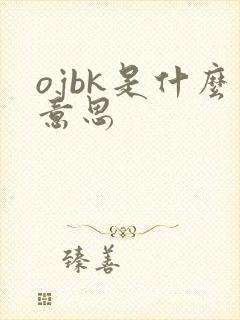 ojbk是什麼
意思
臻善